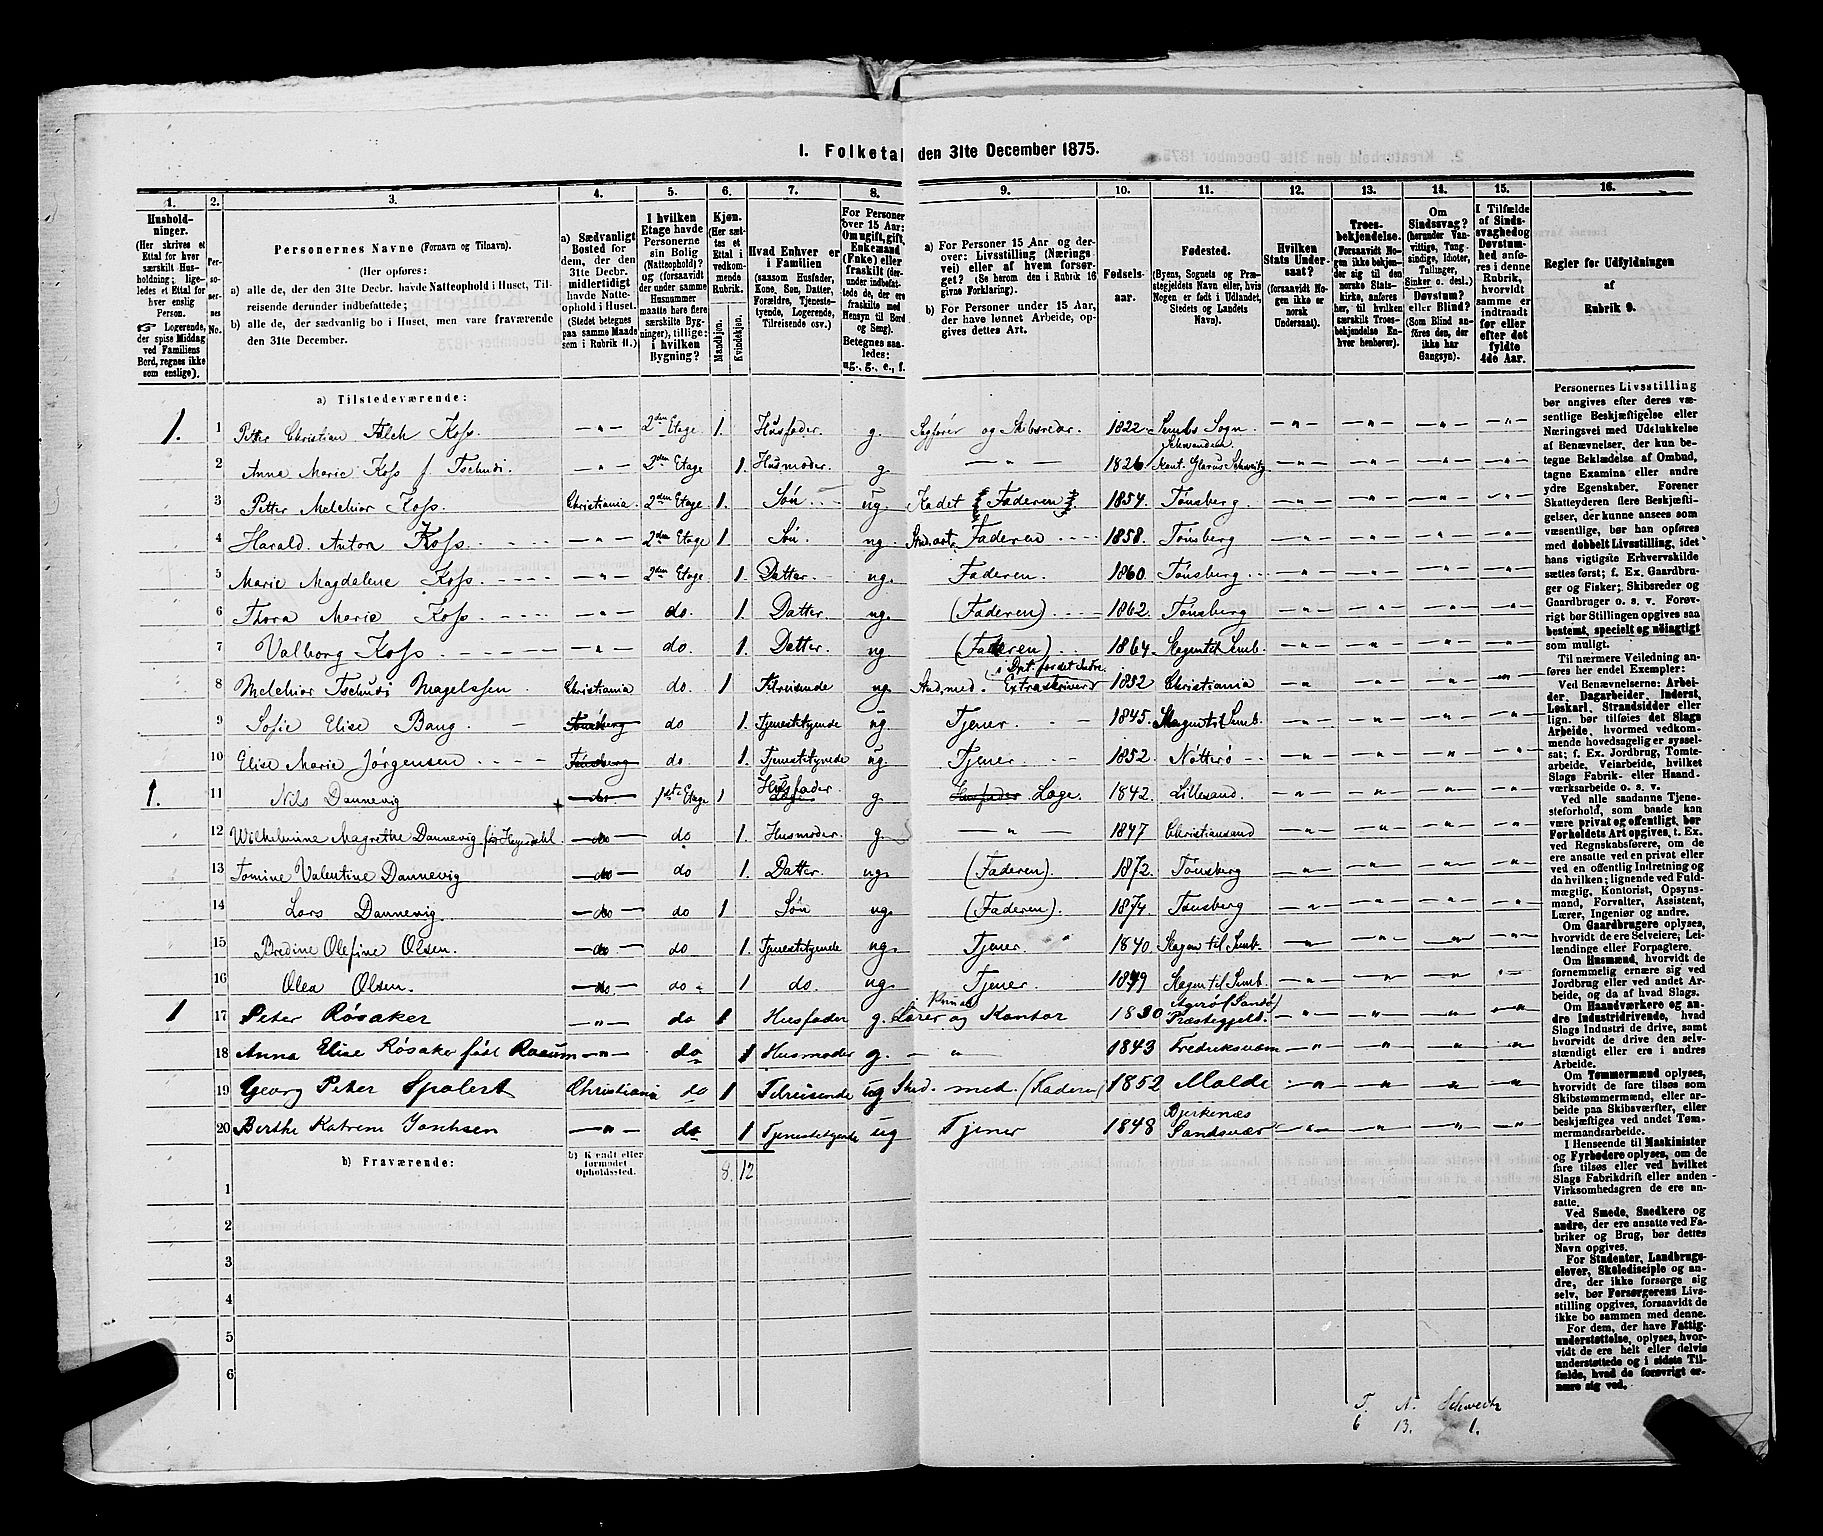 1. Folketal den 31te December 1875.
1. 2. 3. 4. 5. 6. 7. 8. 9. 10. 11. 12. 13. 14. 15. 16.
Hushold-
ninger.
(Her skrives et
Ettal for hver
særskilt Hus-
holdning; lige-
ledes et Ettal for
hver enslig
Person.
Logerende,
der spise Middag
ved Familiens
Bord, regnes ikke
som enslige).
Per-
so-
ner-
nes
No.
Personernes Navne (Fornavn og Tilnavn).
(Her opføres:
a) alle de, der den 31te Decbr. havde Natteophold i Huset, Til-
reisende derunder indbefattede;
b) alle de, der sædvanlig bo i Huset, men vare fraværende
den 31te December.
a) Sædvanligt
Bosted for
dem, der den
31te Decbr.
midlertidigt
havde Natte-
ophold i Huset.
(Stedet betegnes
paa samme Maade
som i Rubrik 11.)
I hvilken
Etage havde
Personerne
sin Bolig
(Natteophold)?
(og forsaavidt
der under samme
Husnummer
maatte høre flere
særskilte Byg-
ninger), tillige:
i hvilken
Bygning?
Kjøn.
(Her sæt-
tes et
Ettal i
vedkom-
mende
Rubrik.
Mandkjøn.
Kvindekjøn.
Hvad Enhver er
i Familien
(saasom Husfader,
Kone, Søn, Datter,
Forældre, Tjeneste-
tyende, Logerende,
Tilreisende osv.)
For Personer
over 15 Aar:
Om ugift, gift,
Enkemand
(Enke) eller
fraskilt (der-
under indbefat-
tede de, der ere
fraskilte med
Hensyn til Bord
og Seng).
Betegnes saa-
ledes:
ug., g., e., f.
a) For Personer 15 Aar og der-
over: Livsstilling (Nærings-
vei) eller af hvem forsør-
get? (Se herom den i Rubrik 16
givne Forklaring).
b) For Personer under 15 Aar,
der have lønnet Arbeide, op-
gives dettes Art.
Fødsels-
aar.
Fødested.
(Byens, Sognets og Præ-
stegjeldets Navn eller, hvis
Nogen er født i Udlandet,
Stedets og Landets
Navn).
Hvilken
Stats Under-
saat?
(forsaavidt No-
gen ikke er
norsk
Undersaat).
Troes-
bekjendelse.
(Forsaavidt No-
gen ikke bekjen-
der sig til den
norske Stats-
kirke, anføres
her, til hvilken
særskilt Troes-
bekjendelse En-
hver henhører).
Om
Sindssvag?
(herunder Van-
vittige, Tung-
sindige, Idioter,
Tullinger,
Sinker o. desl.)
Døvstum?
eller Blind?
(Som Blind an-
føres den, der
ikke har
Gangsyn).
I Tilfælde
af Sinds-
svaghed og
Døvstum-
hed anfø-
res i denne
Rubrik,
hvorvidt
samme er
indtraadt
før eller
efter det
fyldte
4de Aar.
Regler for Udfyldningen
af
Rubrik 9.
a) Tilstedeværende:
1. 1 Petter Christian Falch Koss. —"— 2den Etage 1. Husfader. g. Sagfører og Skibsreder. 1822. Sembs Sogn —"— —"— —"— —"—
2 Anna Marie Koss f Tschudi. —"— 2den Etage 1. Husmoder. g —"— 1826. Schwanden Kant. Glarus Schweitz —"— —"— —"— —"—
3 Petter Melchior Koss. Christiania. 2den Etage 1. Søn ug. Kadet (Faderen) 1854. Tønsberg. —"— —"— —"— —"—
4 Harald Anton Koss —"— 2den Etage 1 Søn. ug. Stud. art. Faderen 1858. Tønsberg —"— —"— —"— —"—
5 Marie Magdalene Koss. —"— 2den Etage 1. Datter. ug. Faderen. 1860. Tønsberg —"— —"— —"— —"—
6 Thora Marie Koss. —"— do. 1. Datter. ug. (Faderen) 1862. Tønsberg —"— —"— —"— —"—
7 Valborg Koss. —"— do. 1. Datter. ug (Faderen) 1864. Slagen til Semb. —"— —"— —"— —"—
8 Melchior Tschudi Magelssen Christiania do. 1 Tilreisende ug. Stud. med. Extraskriver i Dpt. for det Indre. 1852 Christiania —"— —"— —"— —"—
9 Sofie Elise Bang. Tønsberg do 1. Tjenestetyende ug. Tjener. 1845. Slagen til Semb. —"— —"— —"— —"—
10 Elise Marie Jørgensen Tønsberg do. 1. Tjenestetyende ug. Tjener. 1852. Nøtterø —"— —"— —"— —"—
1. 11 Nils Dannevig do 1ste Etage 1 Husfader g. Husfader Læge. 1842. Lillesand. —"— —"— —"— —"—
12 Wilhelmine Magrethe Dannevig do do 1. Husmoder. g. —"— 1847 Christiansand —"— —"— —"— —"—
13 Tomine Valentine Dannevig do do 1. Datter. ug. (Faderen). 1872. Tønsberg —"— —"— —"— —"—
14 Lars Dannevig. do do 1 Søn ug. (Faderen). 1874. Tønsberg. —"— —"— —"— —"—
15 Bredine Olefine Olsen. do do 1. Tjenestetyende ug. Tjener. 1840. Slagen til Semb. —"— —"— —"— —"—
16 Olea Olsen. do do. 1 do. ug. Tjener. 1849 Slagen til Semb. —"— —"— —"— —"—
1 17 Peter Røsaker —"— do 1 Husfader g. Lærer og Kantor 1830 Præstegjeld. —"— —"— —"— —"—
18 Anna Elise Røsaker født Raaum —"— do 1 Husmoder g. —"— 1843 Fredriksværn —"— —"— —"— —"—
19 Georg Peter Spolert Christiania do 1 Tilreisende ug Stud. med. (Faderen) 1852 Molde —"— —"— —"— —"—
20 Berthe Katrine —"— do 1 Tjenestetyende ug Tjener 1848 Sandsvær —"— —"— —"— —"—
b) Fraværende:
b) Kjendt eller
formodet
Opholdssted.
8. 12
1
2
3
4
5
6
Personernes Livsstilling
bør angives efter deres væ-
sentlige Beskjæftigelse eller
Næringsvei med Udelukkelse
af Benævnelser, der kun be-
tegne Beklædelse af Ombud,
tagne Examina eller andre
ydre Egenskaber. Forener
Skatteyderen flere Beskjæfti-
gelser, der kunne ansees som
væsentlige, bør han opføres
med dobbelt Livsstilling, idet
hans vigtigste Erhvervskilde
sættes først; f. Ex. Gaardbru-
ger og Fisker; Skibsreder og
Gaardbruger o. s. v. Forøv-
rigt bør Stillingen opgives saa
bestemt, specielt og nøiagtigt
som muligt.
Til nærmere Veiledning an-
føres her endel Exempler:
Ved Benævnelserne: Arbei-
der, Dagarbeider, Inderst,
Løskarl, Strandsidder eller
lign. bør tilføies det Slags
Arbeide, hvormed vedkom-
mende hovedsagelig er syssel-
sat; f. Ex. Jordbrug, Tomte-
arbeide, Veiarbeide, hvilket
Slags Fabrik- eller Haand-
værksarbeide o. s. v.
Ved alle saadanne Tjene-
steforhold, som baade kan
være privat og offentligt, bør
Forholdets Art opgives, t. Ex.
ved Regnskabsførere, om de
ere ansatte ved en privat eller
en offentlig Indretning og
da hvilken; lignende ved Fuld-
mægtig, Kontorist, Opsyns-
mand, Forvalter, Assistent,
Lærer, Ingeniør og andre.
Om Gaardbrugere oplyses,
hvorvidt de ere Selveiere, Lei-
lændinge eller Forpagtere.
Om Husmænd, hvorvidt de
fornemmelig ernære sig ved
Jordbrug eller ved andet Ar-
beide, og da af hvad Slags.
Om Haandværkere og an-
dre Industridrivende, hvad
Slags Industri de drive, samt
hvorvidt de drive den selv-
stændigt eller ere i andres
Arbeide.
Om Tømmermænd oplyses,
hvorvidt de fare tilsøs som
Skibstømmermænd, eller ar-
beide paa Skibsværfter, eller
beskjæftiges ved andet Tøm-
mermandsarbeide.
I Henseende til Maskinister
og Fyrbødere oplyses, om de
fare tilsøs eller ved hvilket
Slags Fabrikdrift eller anden
Virksomhedsgren de ere an-
satte.
Ved Smede, Snedkere og
andre, der ere ansatte ved Fa-
briker og Brug, bør dettes
Navn opgives.
For Studenter, Landbrugs-
elever, Skoledisciple og an-
dre, der ikke forsørge sig
selv, bør Forsørgerens Livs-
stilling opgives, forsaavidt de
ikke bo sammen med denne.
For dem, der have Fattig-
understøttelse, oplyses, hvor-
vidt de ere helt eller delvis
understøttede og i sidste Til-
fælde, hvad de forøvrigt er-
nære sig ved.
T. N. Schweitz
6 13. 1.